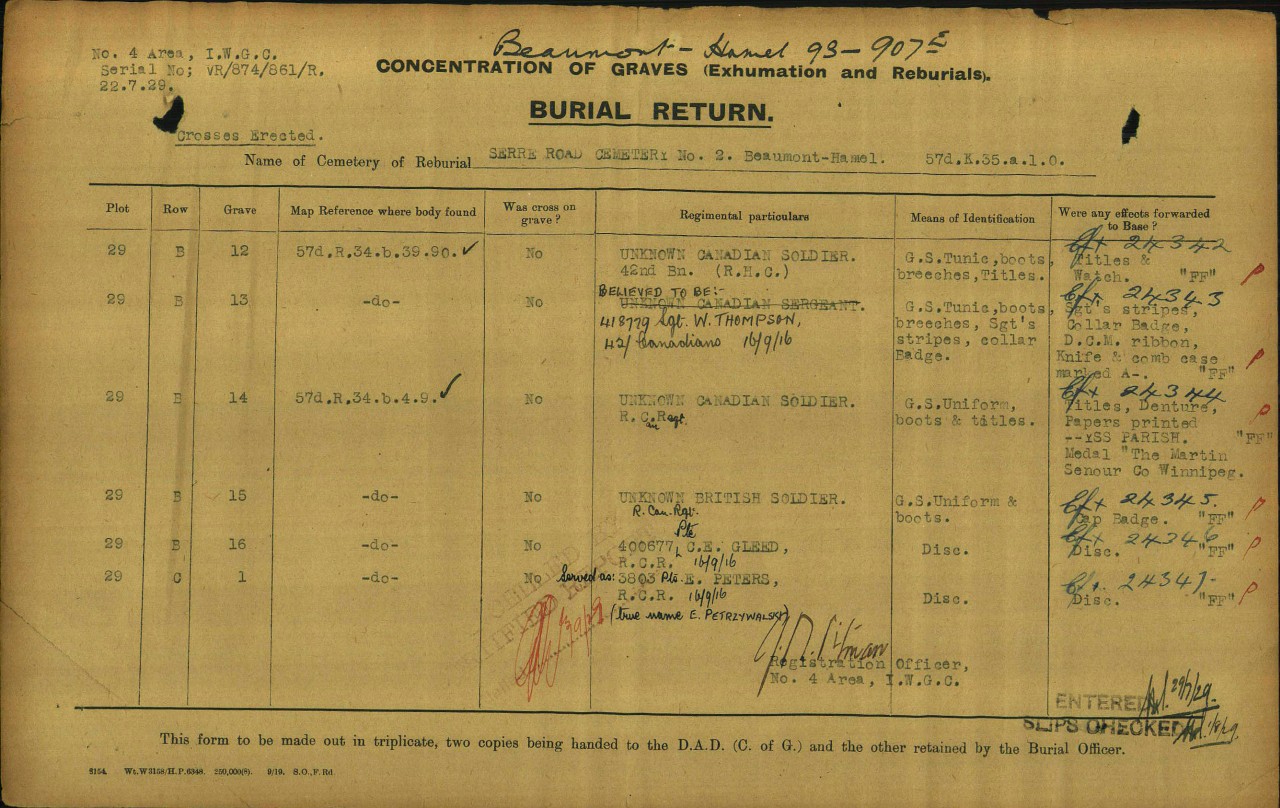 Beaumont - Hamel 93 - 907E
No. 4 Area, I.W.G.C.
Serial No; VR/874/861/R.
22.7.29.
CONCENTRATION OF GRAVES (Exhumation and Reburials).
BURIAL RETURN.
Crosses Erected.
Name of Cemetery of Reburial SERRE ROAD CEMETERY No. 2. Beaumont-Hamel. 57d.K.35.a.1.0.
Plot Row Grave Map Reference where body found Was cross on grave? Regimental particulars Means of Identification Were any effects forwarded to Base?
29 B 12 57d.R.34.b.39.90. ✓ No
UNKNOWN CANADIAN SOLDIER.
42nd Bn. (R.H.C.)
G.S.Tunic, boots,
breeches, Titles.
Efx 24342
Titles &
Watch. "FF" P
29 B 13 -do- No
BELIEVED TO BE:-
UNKNOWN CANADIAN SERGEANT.
418779 Sgt. W. THOMPSON,
42/ Canadians 16/9/16
G.S.Tunic, boots,
breeches, Sgt's
stripes, collar
Badge.
Efx 24343
Sgt's stripes,
Collar Badge,
D.C.M. ribbon,
Knife & comb case
marked A-. "FF" P
29 B 14 57d.R.34.b.4.9. ✓ No
UNKNOWN CANADIAN SOLDIER.
R. C. Regt.
an
G.S.Uniform,
boots & titles.
Efx 24344
Titles, Denture,
Papers printed
--YSS PARISH. "FF" P
Medal "The Martin
Senour Co Winnipeg.
29 B 15 -do- No
UNKNOWN BRITISH SOLDIER.
R. Can. Rgt.
G.S.Uniform &
boots.
Efx 24345.
Cap Badge. "FF" P
29 B 16 -do- No
Pte
400677, C.E. GLEED,
R.C.R. 16/9/16
Disc.
Efx 24346
Disc. "FF" P
29 C 1 -do- No
Served as: 3803 Pte. E. PETERS,
R.C.R. 16/9/16
(true name E. PETRZYWALSKI)
Disc.
Efx. 24347
Disc. "FF" P
Registration Officer,
No. 4 Area, I.W.G.C.
ENTERED 29/7/29.
SLIPS CHECKED 1/8/29.
This form to be made out in triplicate, two copies being handed to the D.A.D. (C. of G.) and the other retained by the Burial Officer.
8154. Wt.W3158/H.P.6348. 250,000(8). 9/19. S.O.,F.Rd.